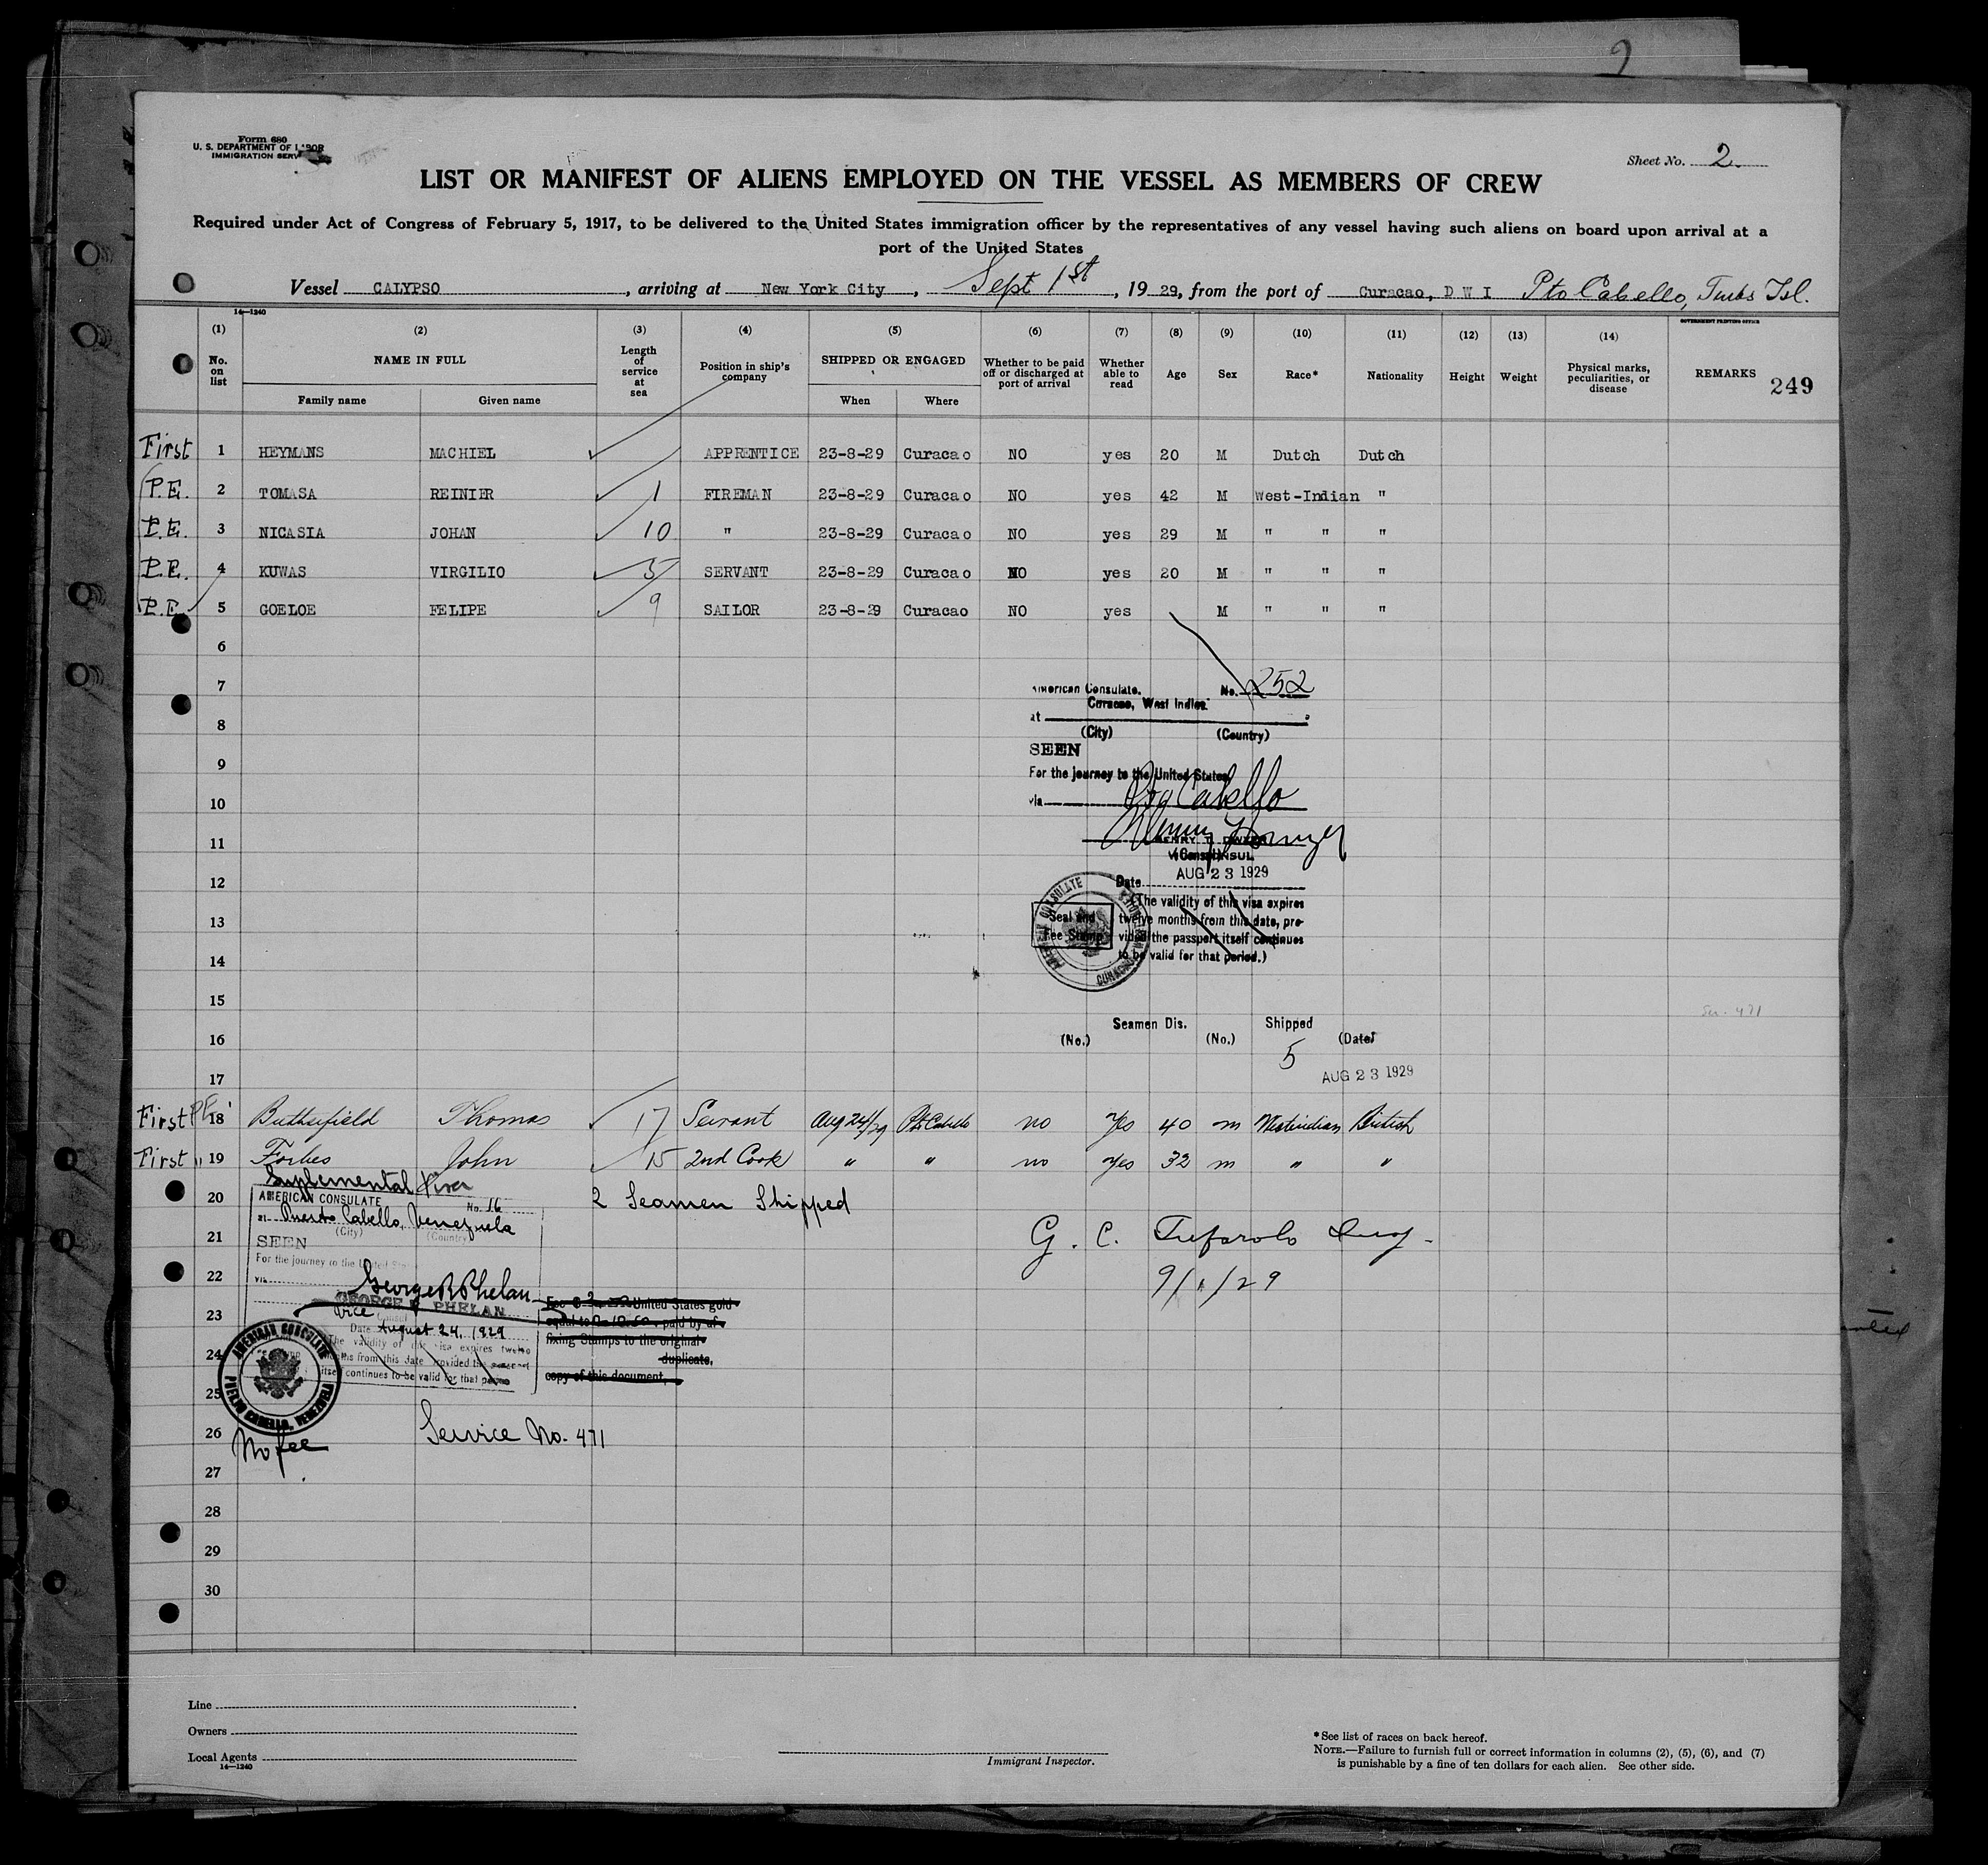 2
Form 680
U. S. DEPARTMENT OF LABOR
IMMIGRATION SERV
Sheet No. 2
LIST OR MANIFEST OF ALIENS EMPLOYED ON THE VESSEL AS MEMBERS OF CREW
Required under Act of Congress of February 5, 1917, to be delivered to the United States immigration officer by the representatives of any vessel having such aliens on board upon arrival at a
port of the United States
Vessel CALYPSO, arriving at New York City, Sept 1st, 1929, from the port of Curacao, D W I Pto Cabello, Turks Isl.
14—1240
GOVERNMENT PRINTING OFFICE
(1) (2) (3) (4) (5) (6) (7) (8) (9) (10) (11) (12) (13) (14)
No. on list NAME IN FULL Length of service at sea Position in ship's company SHIPPED OR ENGAGED Whether to be paid off or discharged at port of arrival Whether able to read Age Sex Race* Nationality Height Weight Physical marks, peculiarities, or disease REMARKS 249
Family name Given name When Where
First 1 HEYMANS MACHIEL APPRENTICE 23-8-29 Curacao NO yes 20 M Dutch Dutch
P.E. 2 TOMASA REINIER 1 FIREMAN 23-8-29 Curacao NO yes 42 M West-Indian "
P.E. 3 NICASIA JOHAN 10 " 23-8-29 Curacao NO yes 29 M " " "
P.E. 4 KUWAS VIRGILIO 5 SERVANT 23-8-29 Curacao NO yes 20 M " " "
P.E. 5 GOELOE FELIPE 9 SAILOR 23-8-29 Curacao NO yes M " " "
6
7
8
9
10
11
12
13
14
15
16
17
American Consulate. No. 252
Curacao, West Indies.
at
(City) (Country)
SEEN
For the journey to the United States
via Cabello
HENRY DWYER
VICE CONSUL
Date AUG 23 1929
(The validity of this visa expires
twelve months from this date, pro-
vided the passport itself continues
to be valid for that period.)
Seal and
Fee Stamp
AMERICAN CONSULATE
Ser. 471
Seamen Dis. Shipped
(No.) (No.) (Date)
5
AUG 23 1929
First P.E. 18 Butterfield Thomas 17 Servant Aug 24/29 Pto Cabello no Yes 40 m Westindian British
First " 19 Forbes John 15 2nd Cook " " no Yes 32 m " "
20
21
22
23
24
25
26
27
28
29
30
Suplemental Visa
AMERICAN CONSULATE No. 16
at Puerto Cabello, Venezuela
(City) (Country)
SEEN
For the journey to the United States
via
George R Phelan
GEORGE R PHELAN
Vice Consul
Date August 24, 1929
The validity of this visa expires twelve
months from this date provided the passport
itself continues to be valid for that period
AMERICAN CONSULATE
PUERTO CABELLO, VENEZUELA
No fee
Service No. 471
2 Seamen Shipped
United States gold
equal to paid by af-
fixing Stamps to the original
duplicate,
copy of this document,
G. C.
9/1/29
Line
Owners
Local Agents
14—1240
Immigrant Inspector.
* See list of races on back hereof.
NOTE.—Failure to furnish full or correct information in columns (2), (5), (6), and (7)
is punishable by a fine of ten dollars for each alien. See other side.